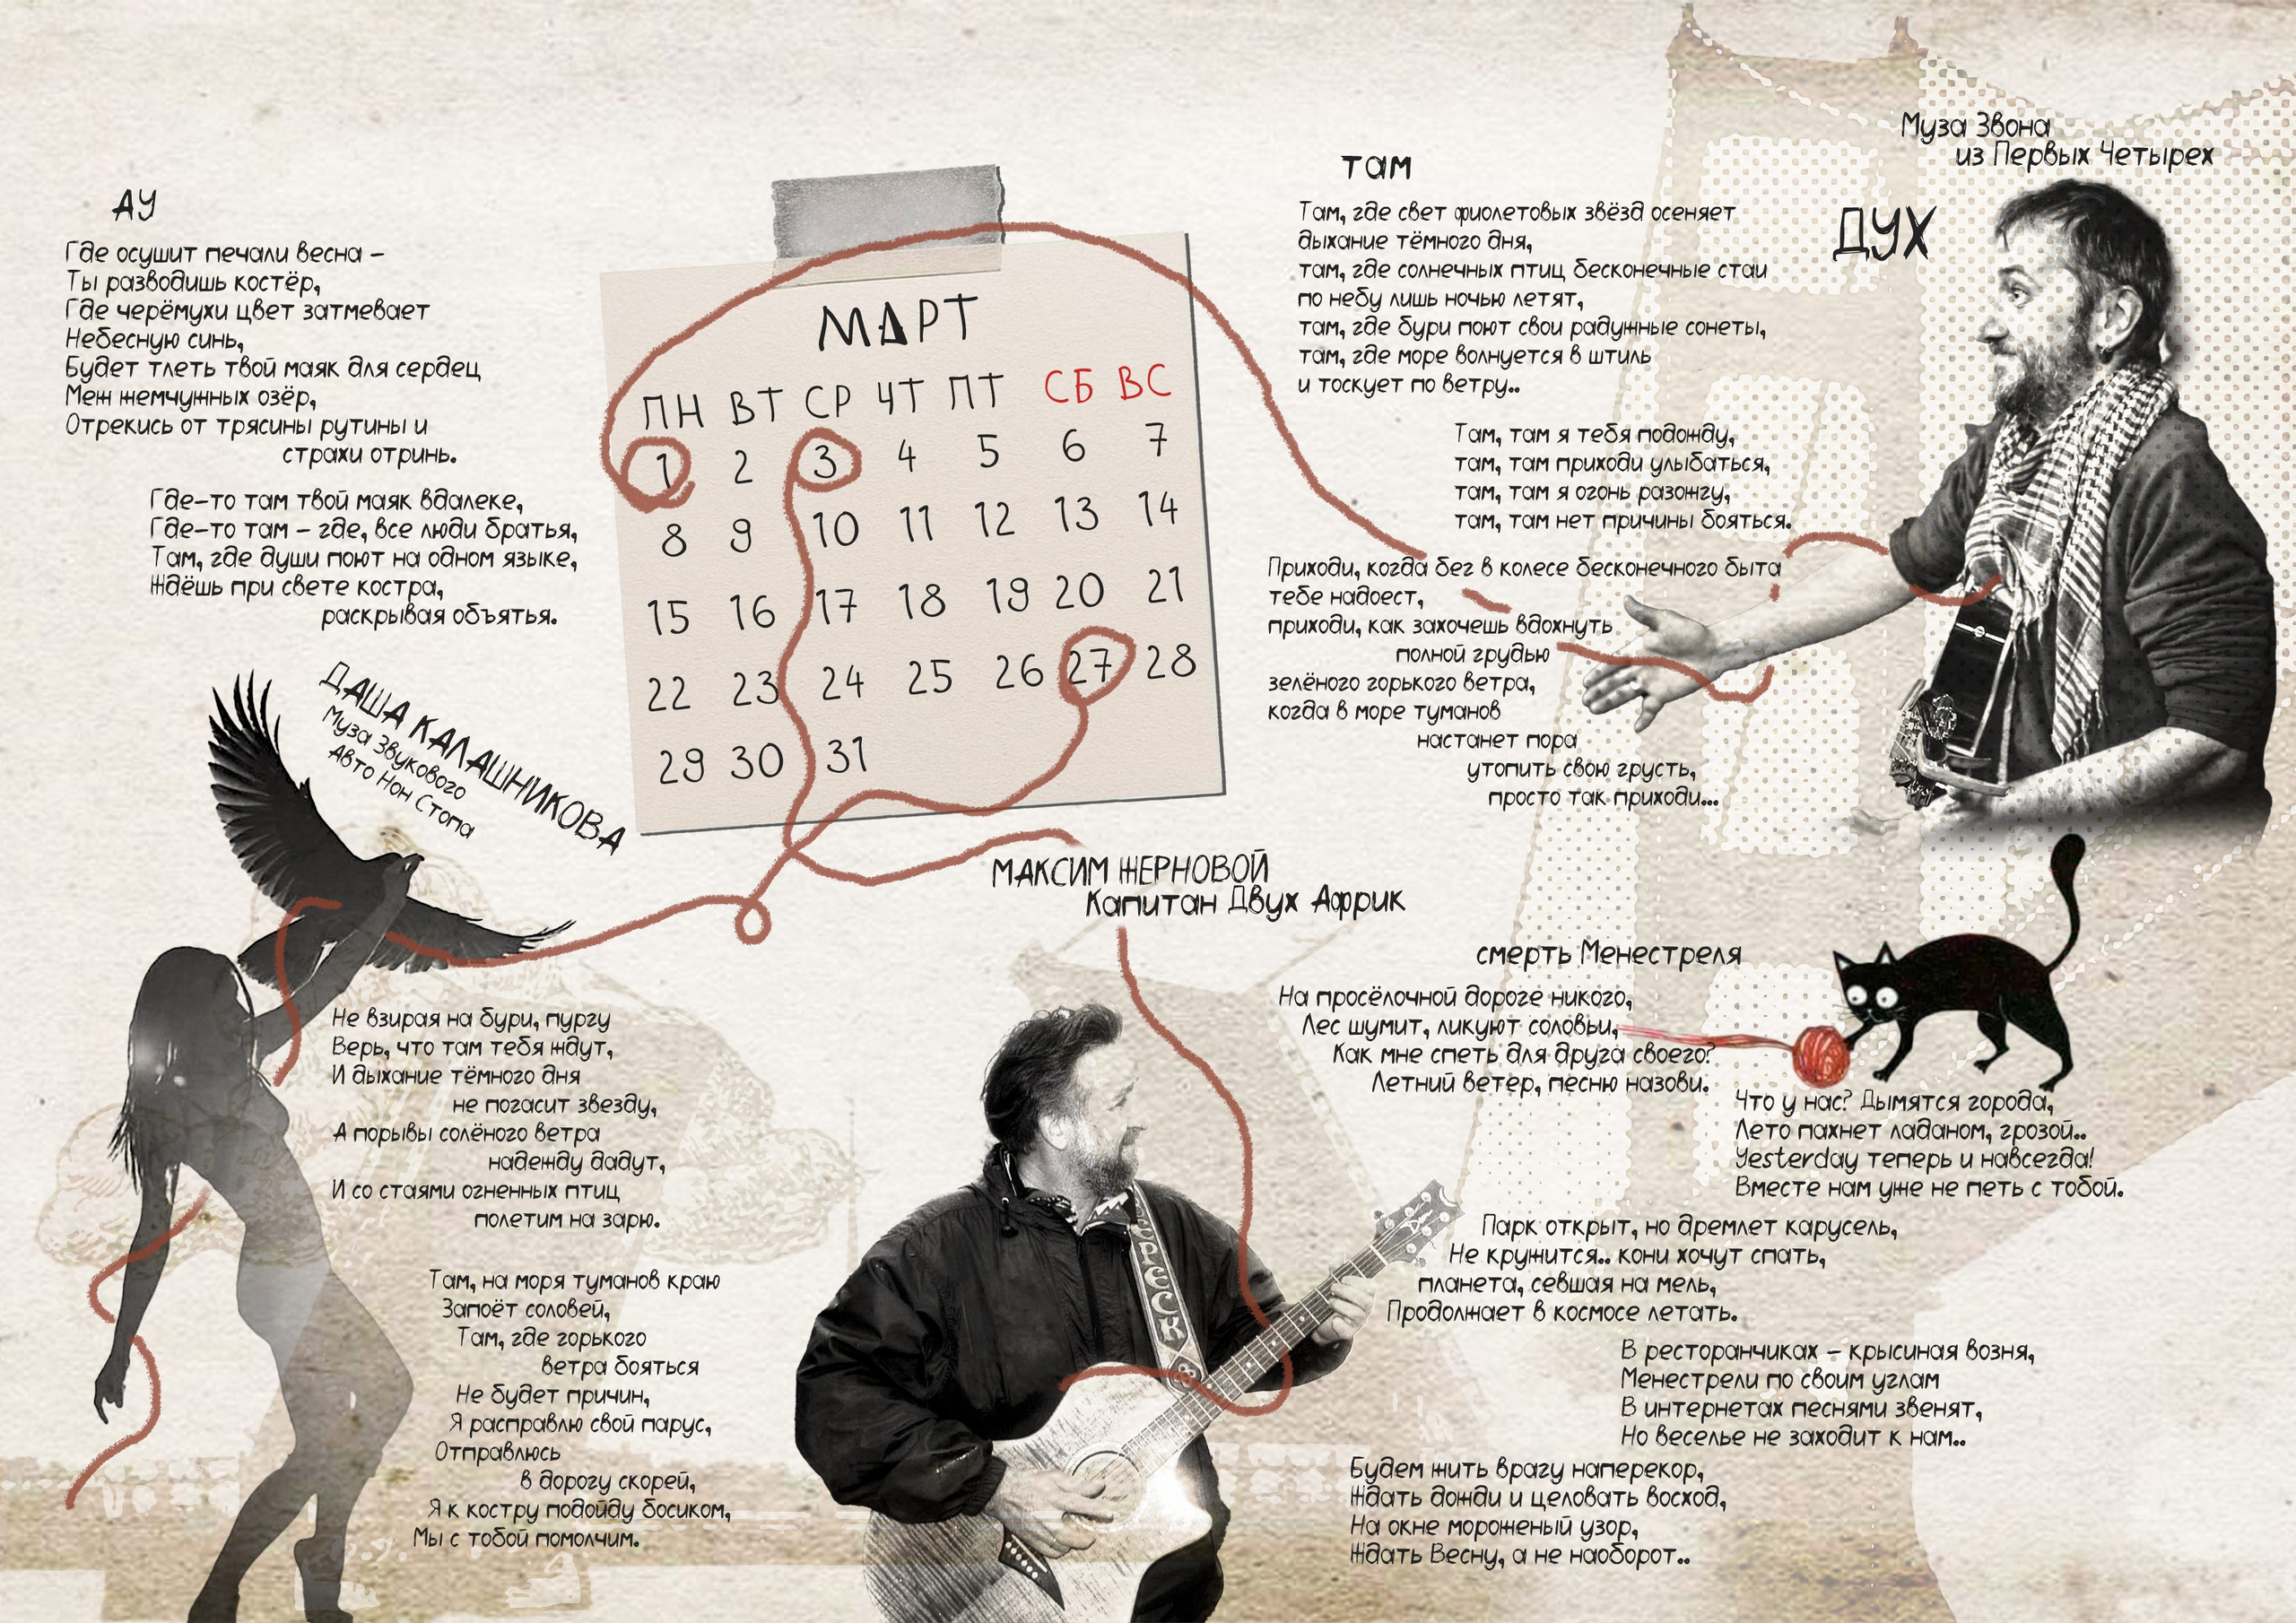 АУ
Где осушит печали весна –
Ты разводишь костёр,
Где черёмухи цвет затмевает
Небесную синь,
Будет тлеть твой маяк для сердец
Меж жемчужных озёр,
Отрекись от трясины рутины и
страхи отринь.
Где-то там твой маяк вдалеке,
Где-то там – где, все люди братья,
Там, где души поют на одном языке,
Ждёшь при свете костра,
раскрывая объятья.
ДАША КАЛАШНИКОВА
Муза Звукового
Авто Нон Стопа
Не взирая на бури, пургу
Верь, что там тебя ждут,
И дыхание тёмного дня
не погасит звезду,
А порывы солёного ветра
надежду дадут,
И со стаями огненных птиц
полетим на зарю.
Там, на моря туманов краю
Запоёт соловей,
Там, где горького
ветра бояться
Не будет причин,
Я расправлю свой парус,
Отправлюсь
в дорогу скорей,
Я к костру подойду босиком,
Мы с тобой помолчим.
МАРТ
ПН ВТ СР ЧТ ПТ СБ ВС
1 2 3 4 5 6 7
8 9 10 11 12 13 14
15 16 17 18 19 20 21
22 23 24 25 26 27 28
29 30 31
МАКСИМ ЖЕРНОВОЙ
Капитан Двух Африк
там
Там, где свет фиолетовых звёзд осеняет
дыхание тёмного дня,
там, где солнечных птиц бесконечные стаи
по небу лишь ночью летят,
там, где бури поют свои радужные сонеты,
там, где море волнуется в штиль
и тоскует по ветру..
Там, там я тебя подожду,
там, там приходи улыбаться,
там, там я огонь разожгу,
там, там нет причины бояться.
Приходи, когда бег в колесе бесконечного быта
тебе надоест,
приходи, как захочешь вдохнуть
полной грудью
зелёного горького ветра,
когда в море туманов
настанет пора
утопить свою грусть,
просто так приходи...
Муза Звона
из Первых Четырех
ДУХ
смерть Менестреля
На просёлочной дороге никого,
Лес шумит, ликуют соловьи,
Как мне спеть для друга своего?
Летний ветер, песню назови.
Что у нас? Дымятся города,
Лето пахнет ладаном, грозой..
Yesterday теперь и навсегда!
Вместе нам уже не петь с тобой.
Парк открыт, но дремлет карусель,
Не кружится.. кони хочут спать,
планета, севшая на мель,
Продолжает в космосе летать.
В ресторанчиках – крысиная возня,
Менестрели по своим углам
В интернетах песнями звенят,
Но веселье не заходит к нам..
Будем жить врагу наперекор,
Ждать дожди и целовать восход,
На окне мороженый узор,
Ждать Весну, а не наоборот..